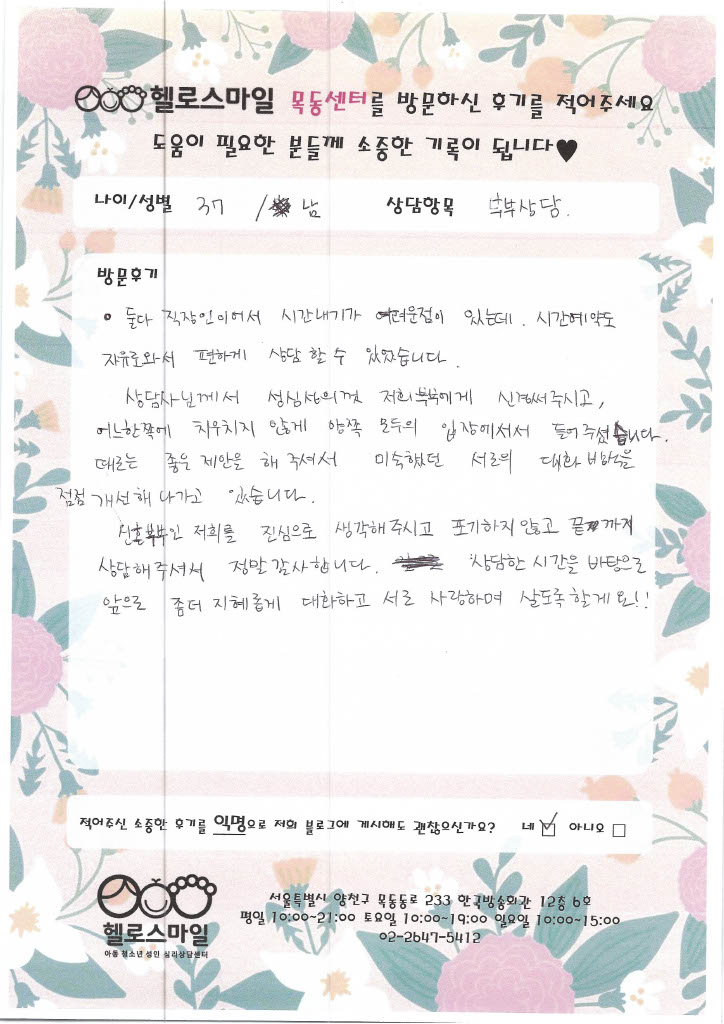 헬로스마일 목동센터를 방문하신 후기를 적어주세요
도움이 필요한 분들께 소중한 기록이 됩니다♥
나이/성별 37 / 남 상담항목 부부상담.
방문후기
• 둘다 직장인이어서 시간내기가 어려운점이 있는데. 시간예약도
자유로와서 편하게 상담 할 수 있었습니다.
상담사님께서 성심성의껏 저희부부에게 신경써주시고,
어느한쪽에 치우치지 않게 양쪽 모두의 입장에서서 들어주셨습니다.
때로는 좋은 제안을 해 주셔서 미숙했던 서로의 대화 방법을
점점 개선해 나가고 있습니다.
신혼부부인 저희를 진심으로 생각해주시고 포기하지 않고 끝까지
상담해주셔서 정말감사합니다. 상담한 시간을 바탕으로
앞으로 좀더 지혜롭게 대화하고 서로 사랑하며 살도록할게요!!
적어주신 소중한 후기를 익명으로 저희 블로그에 게시해도 괜찮으신가요? 네 ☑ 아니오 □
헬로스마일
아동 청소년 성인 심리상담센터
서울특별시 양천구 목동동로 233 한국방송회관 12층 6호
평일 10:00~21:00 토요일 10:00~19:00 일요일 10:00~15:00
02-2647-5412